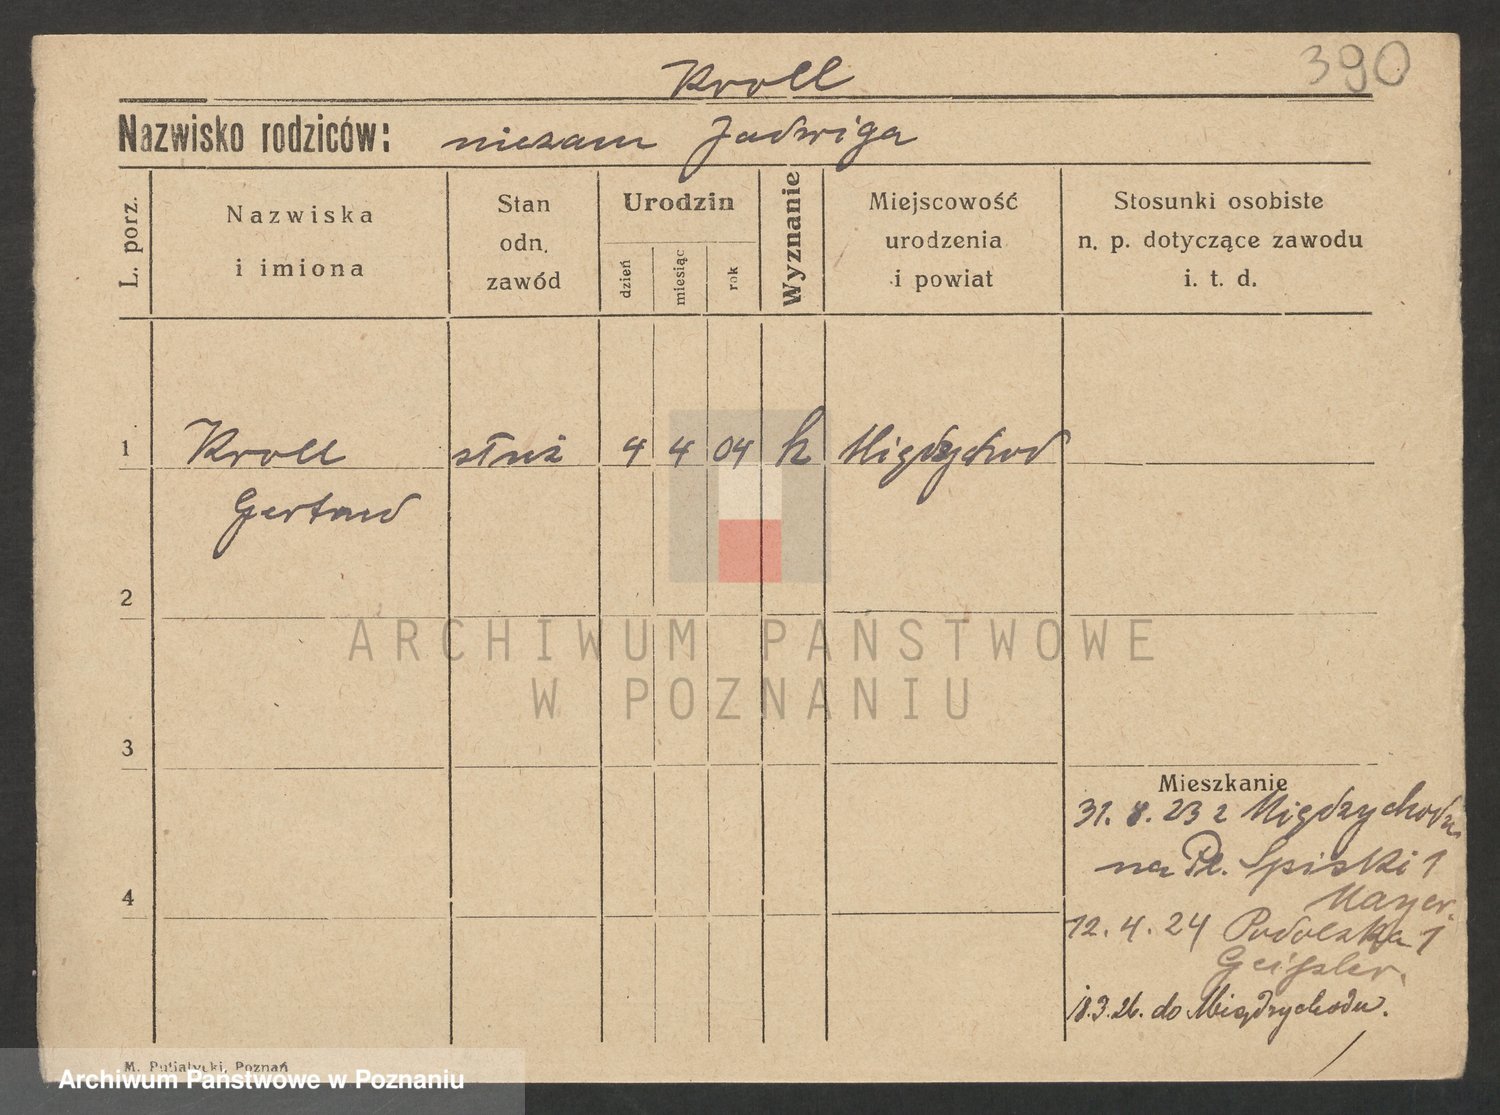 390
Kroll
Nazwisko rodziców: niezam Jadwiga
L. porz.
Nazwiska
i imiona
Stan
odn.
zawód
Urodzin
dzień
miesiąc
rok
Wyznanie
Miejscowość
urodzenia
i powiat
Stosunki osobiste
n. p. dotyczące zawodu
i. t. d.
1 Kroll służ 4 4 04 k Międzychod
Gertrud
2
ARCHIWUM PAŃSTWOWE
W POZNANIU
3
Mieszkanie
31. 8. 23 z Międzychodu
na Pl. Spiski 1
Mayer.
4
12. 4. 24 Podolska 1
Geißler.
18.3.26. do Międzychodu.
M. Putiatycki, Poznań
Archiwum Państwowe w Poznaniu